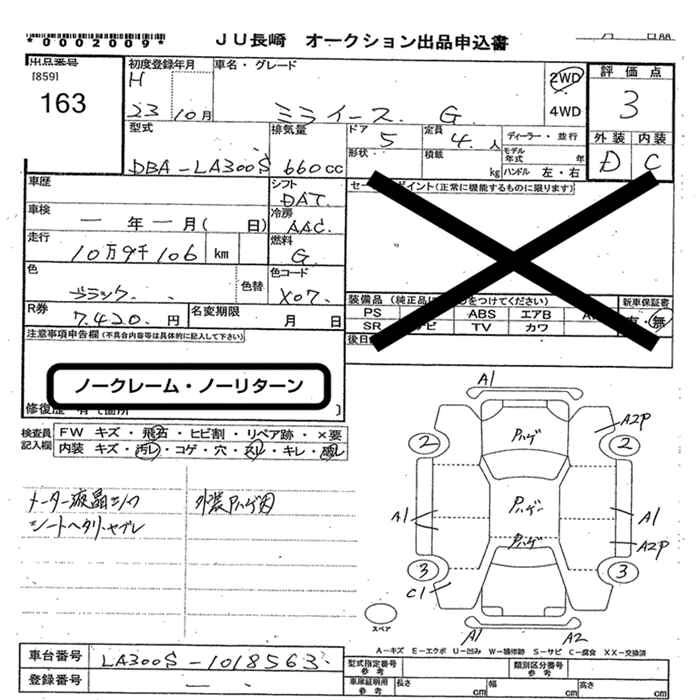 *0002009*
JU長崎 オークション出品申込書
月 日
出品番号
[859]
163
初度登録年月
H
23 10月
車名・グレード
ミライース G
2WD
4WD
評価点
3
外装 内装
D C
型式
DBA-LA300S
排気量
660cc
ドア
5
形状
定員
4 人
積載
kg
ディーラー・並行
モデル年式 年
ハンドル 左・右
車歴
シフト
DAT
車検
ー年ー月( 日)
冷房
AAC
走行
10万9千106 km
燃料
G
色
ブラック
色替
色コード
X07
R券
7,420 円
名変期限
月 日
注意事項申告欄(不具合内容等は具体的に記入して下さい)
ノークレーム・ノーリターン
ポイント(正常に機能するものに限ります)
装備品(純正品に をつけてください)
PS ABS エアB
SR ナビ TV カワ
新車保証書
有・無
後日
検査員記入欄
FW キズ・飛石・ヒビ割・リペア跡・×要
内装 キズ・汚レ・コゲ・穴・スレ・キレ・
メーター液晶
シートヘタリ、ヤブレ
外装Pハゲ
A1
A2P
Pハゲ
2 2
Pハゲ
A1 A1
Pハゲ A2P
3 3
C1
スペア
A1 A2
A-キズ E-エクボ U-凹み W-補修跡 S-サビ C-腐食 XX-交換済
車台番号
LA300S-1018563
登録番号
ー
型式指定番号 参考
類別区分番号 参考
車庫証明用 参考
長さ cm
幅 cm
高さ cm